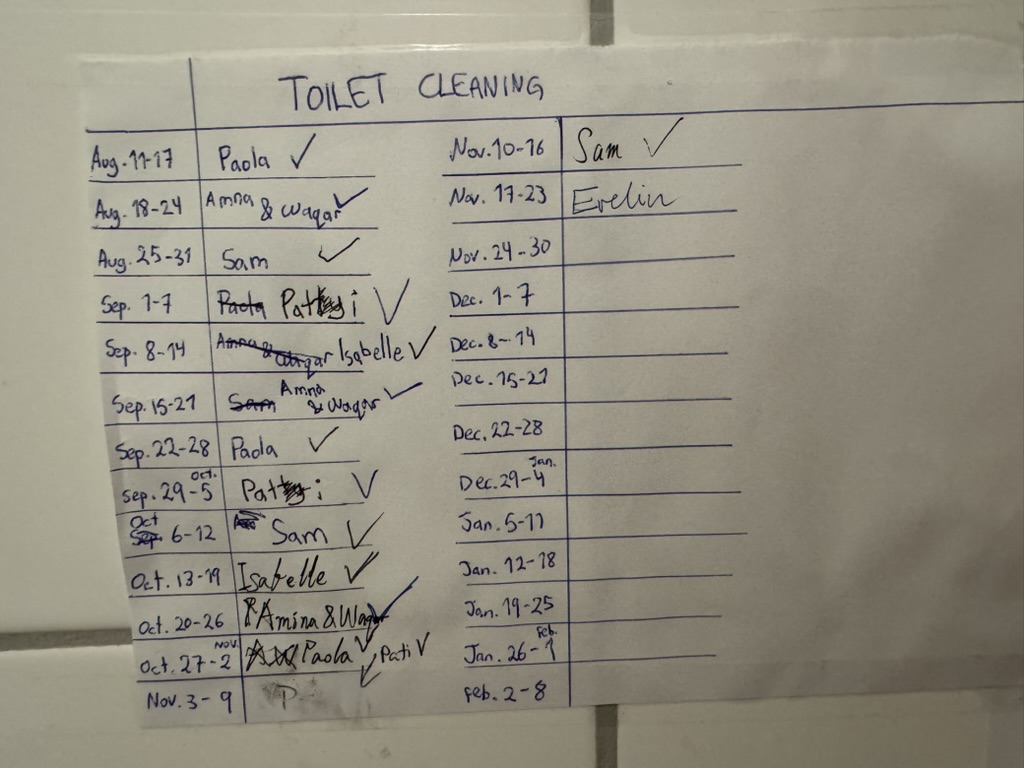 TOILET CLEANING
Aug. 11-17 Paola ✓
Aug. 18-24 Amna & Waqar ✓
Aug. 25-31 Sam ✓
Sep. 1-7 Paola Patti ✓
Sep. 8-14 Amna & Waqar Isabelle ✓
Sep. 15-21 Sam Amna & Waqar ✓
Sep. 22-28 Paola ✓
Sep. 29-5 Oct. Pati ✓
Oct 6-12 Sam ✓
Oct. 13-19 Isabelle ✓
Oct. 20-26 Amina & Waqar ✓
Oct. 27-2 Nov. Paola ✓ Pati ✓
Nov. 3-9 P ✓
Nov. 10-16 Sam ✓
Nov. 17-23 Evelin
Nov. 24-30
Dec. 1-7
Dec. 8-14
Dec. 15-21
Dec. 22-28
Dec. 29-4 Jan.
Jan. 5-11
Jan. 12-18
Jan. 19-25
Jan. 26-1 Feb.
Feb. 2-8